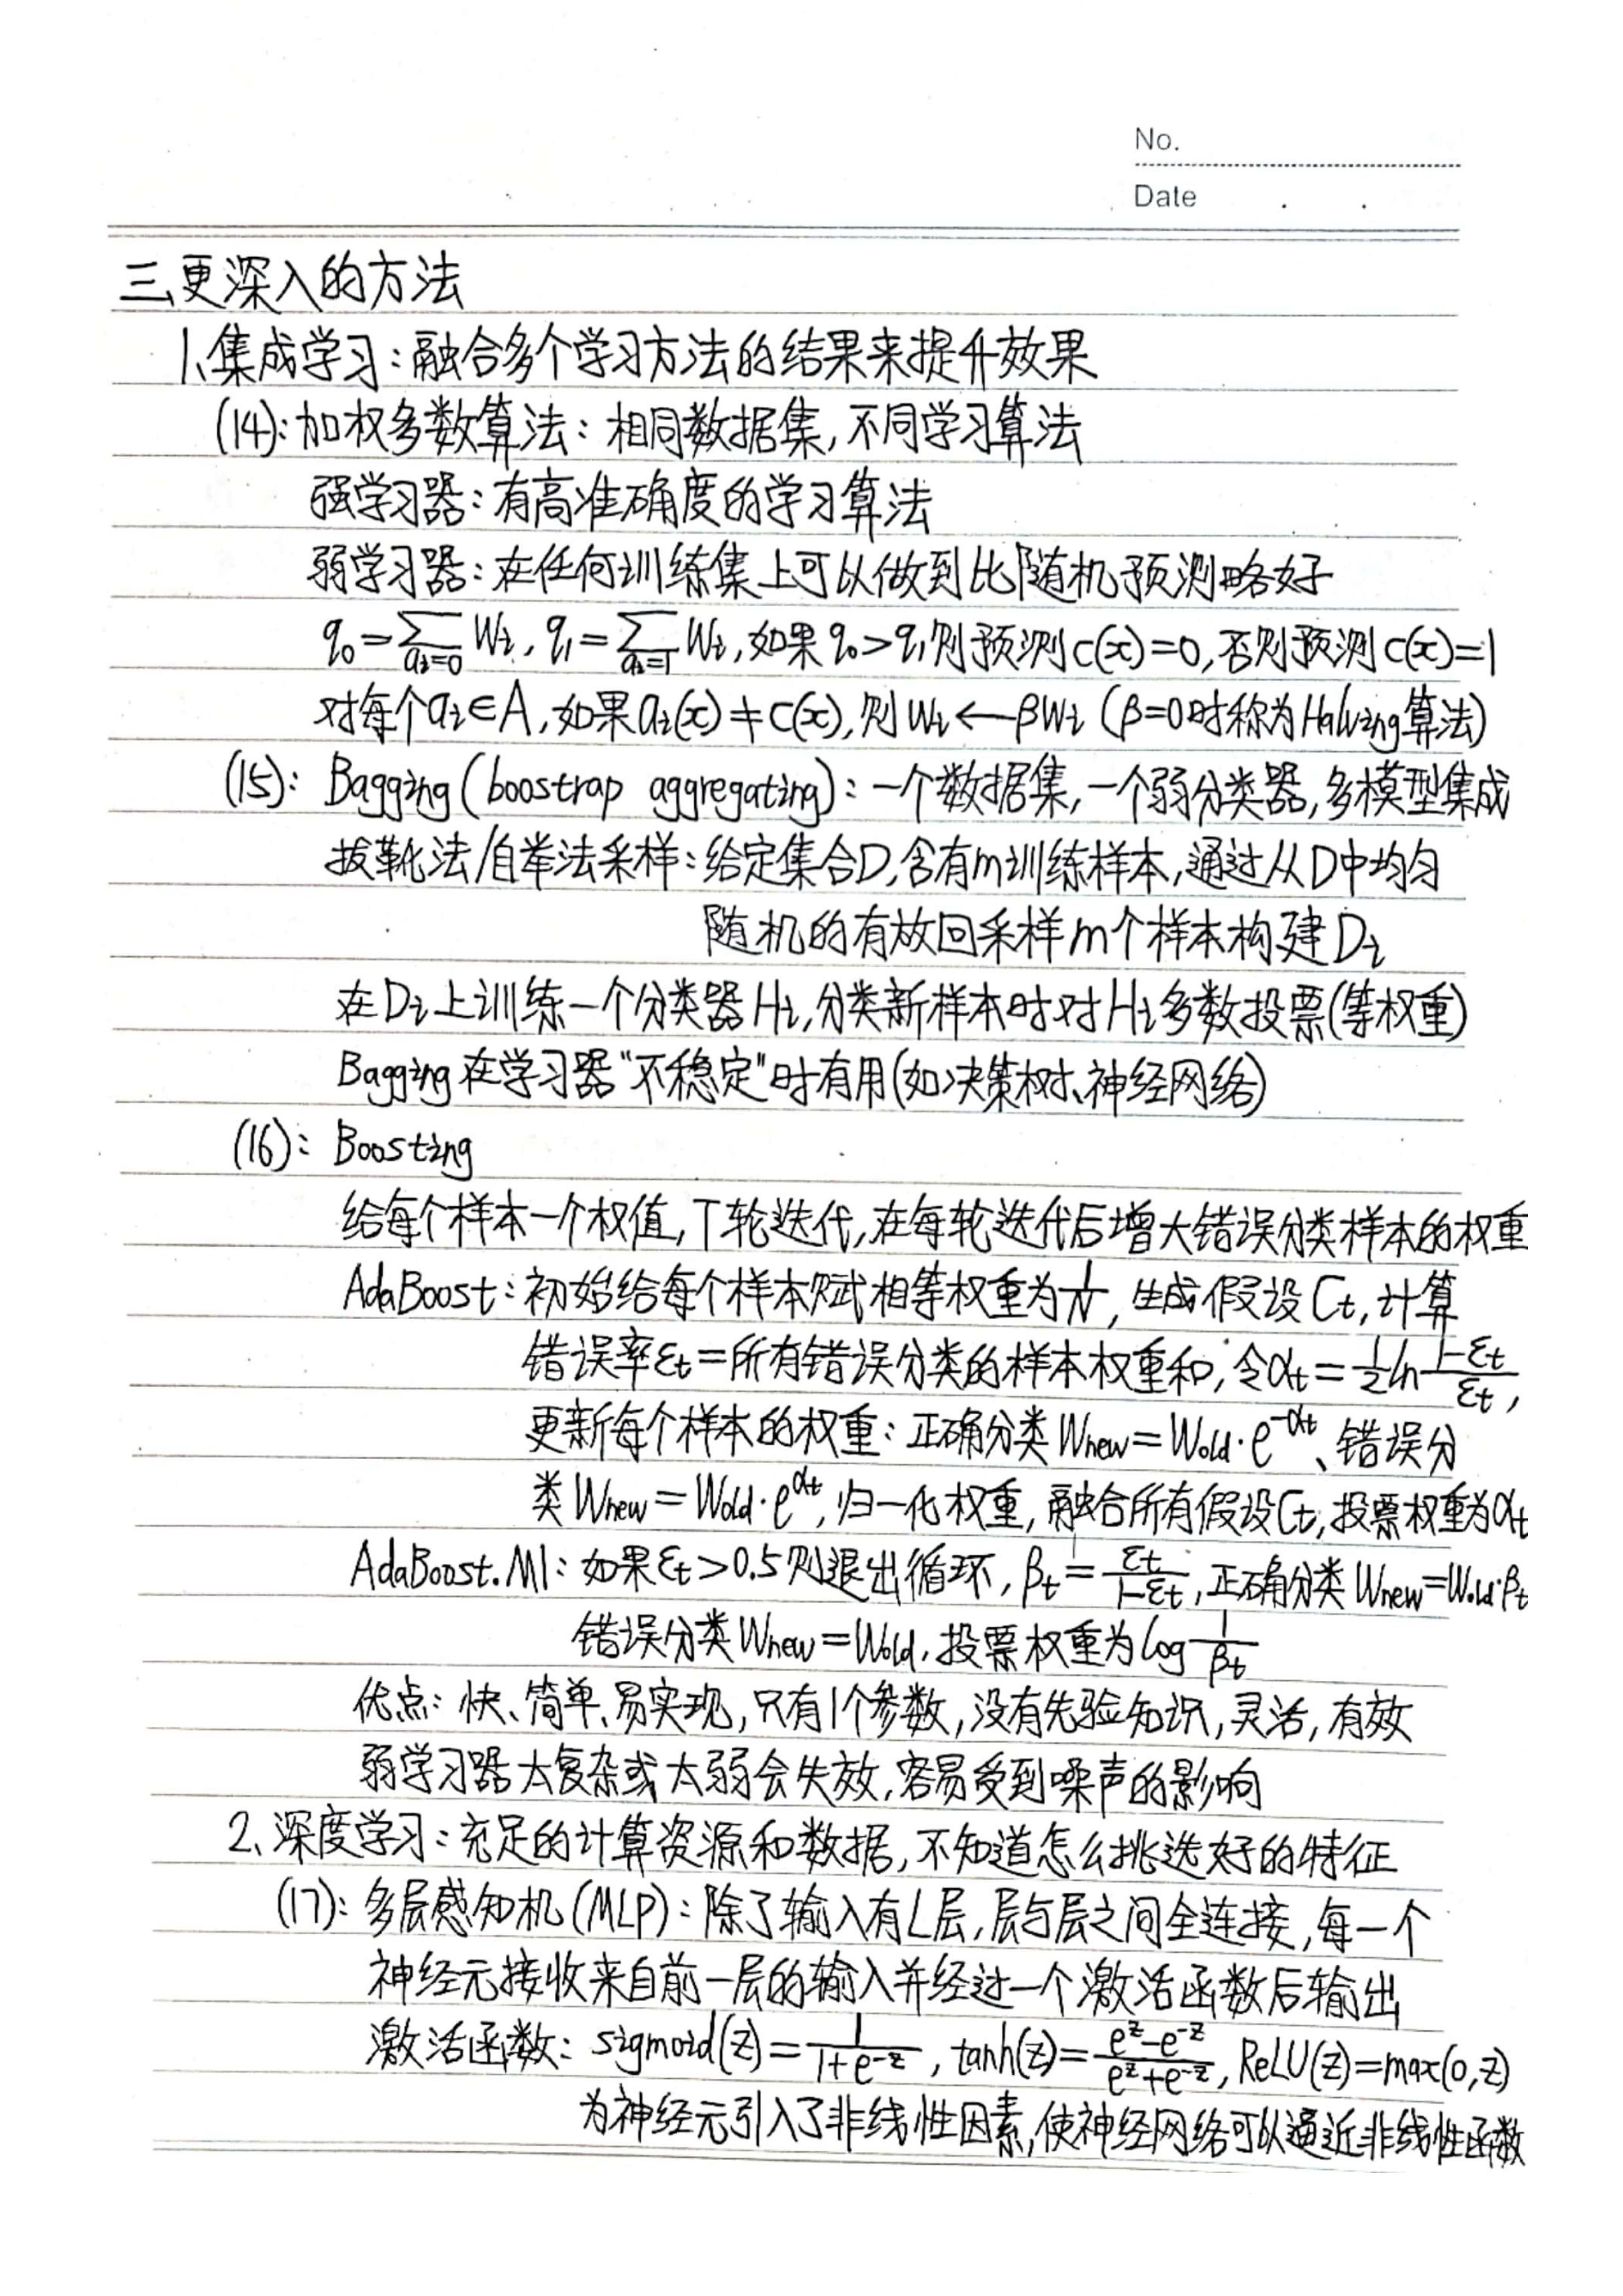 No.
Date
三、更深入的方法
1、集成学习：融合多个学习方法的结果来提升效果
(14)：加权多数算法：相同数据集，不同学习算法
强学习器：有高准确度的学习算法
弱学习器：在任何训练集上可以做到比随机预测略好
q₀=∑_{aᵢ=0} Wᵢ, q₁=∑_{aᵢ=1} Wᵢ, 如果q₀>q₁则预测c(x)=0, 否则预测c(x)=1
对每个aᵢ∈A, 如果aᵢ(x)≠c(x), 则Wᵢ←βWᵢ (β=0时称为Halving算法)
(15)：Bagging(boostrap aggregating)：一个数据集，一个弱分类器，多模型集成
拔靴法/自举法采样：给定集合D,含有m训练样本，通过从D中均匀
随机的有放回采样m个样本构建Dᵢ
在Dᵢ上训练一个分类器Hᵢ, 分类新样本时对Hᵢ多数投票(等权重)
Bagging在学习器"不稳定"时有用(如决策树、神经网络)
(16)：Boosting
给每个样本一个权值，T轮迭代，在每轮迭代后增大错误分类样本的权重
AdaBoost：初始给每个样本赋相等权重为1/N, 生成假设Cₜ, 计算
错误率εₜ=所有错误分类的样本权重和，令αₜ=½ln (1-εₜ)/εₜ,
更新每个样本的权重：正确分类Wnew=Wold·e^{-αₜ}、错误分
类Wnew=Wold·e^{αₜ}, 归一化权重，融合所有假设Cₜ, 投票权重为αₜ
AdaBoost.M1：如果εₜ>0.5则退出循环, βₜ=εₜ/(1-εₜ), 正确分类Wnew=Wold·βₜ
错误分类Wnew=Wold, 投票权重为log 1/βₜ
优点：快、简单、易实现，只有1个参数，没有先验知识，灵活，有效
弱学习器太复杂或太弱会失效，容易受到噪声的影响
2、深度学习：充足的计算资源和数据，不知道怎么挑选好的特征
(17)：多层感知机(MLP)：除了输入有L层，层与层之间全连接，每一个
神经元接收来自前一层的输入并经过一个激活函数后输出
激活函数：sigmoid(z)=1/(1+e^{-z}), tanh(z)=(e^z-e^{-z})/(e^z+e^{-z}), ReLU(z)=max(0,z)
为神经元引入了非线性因素，使神经网络可以逼近非线性函数